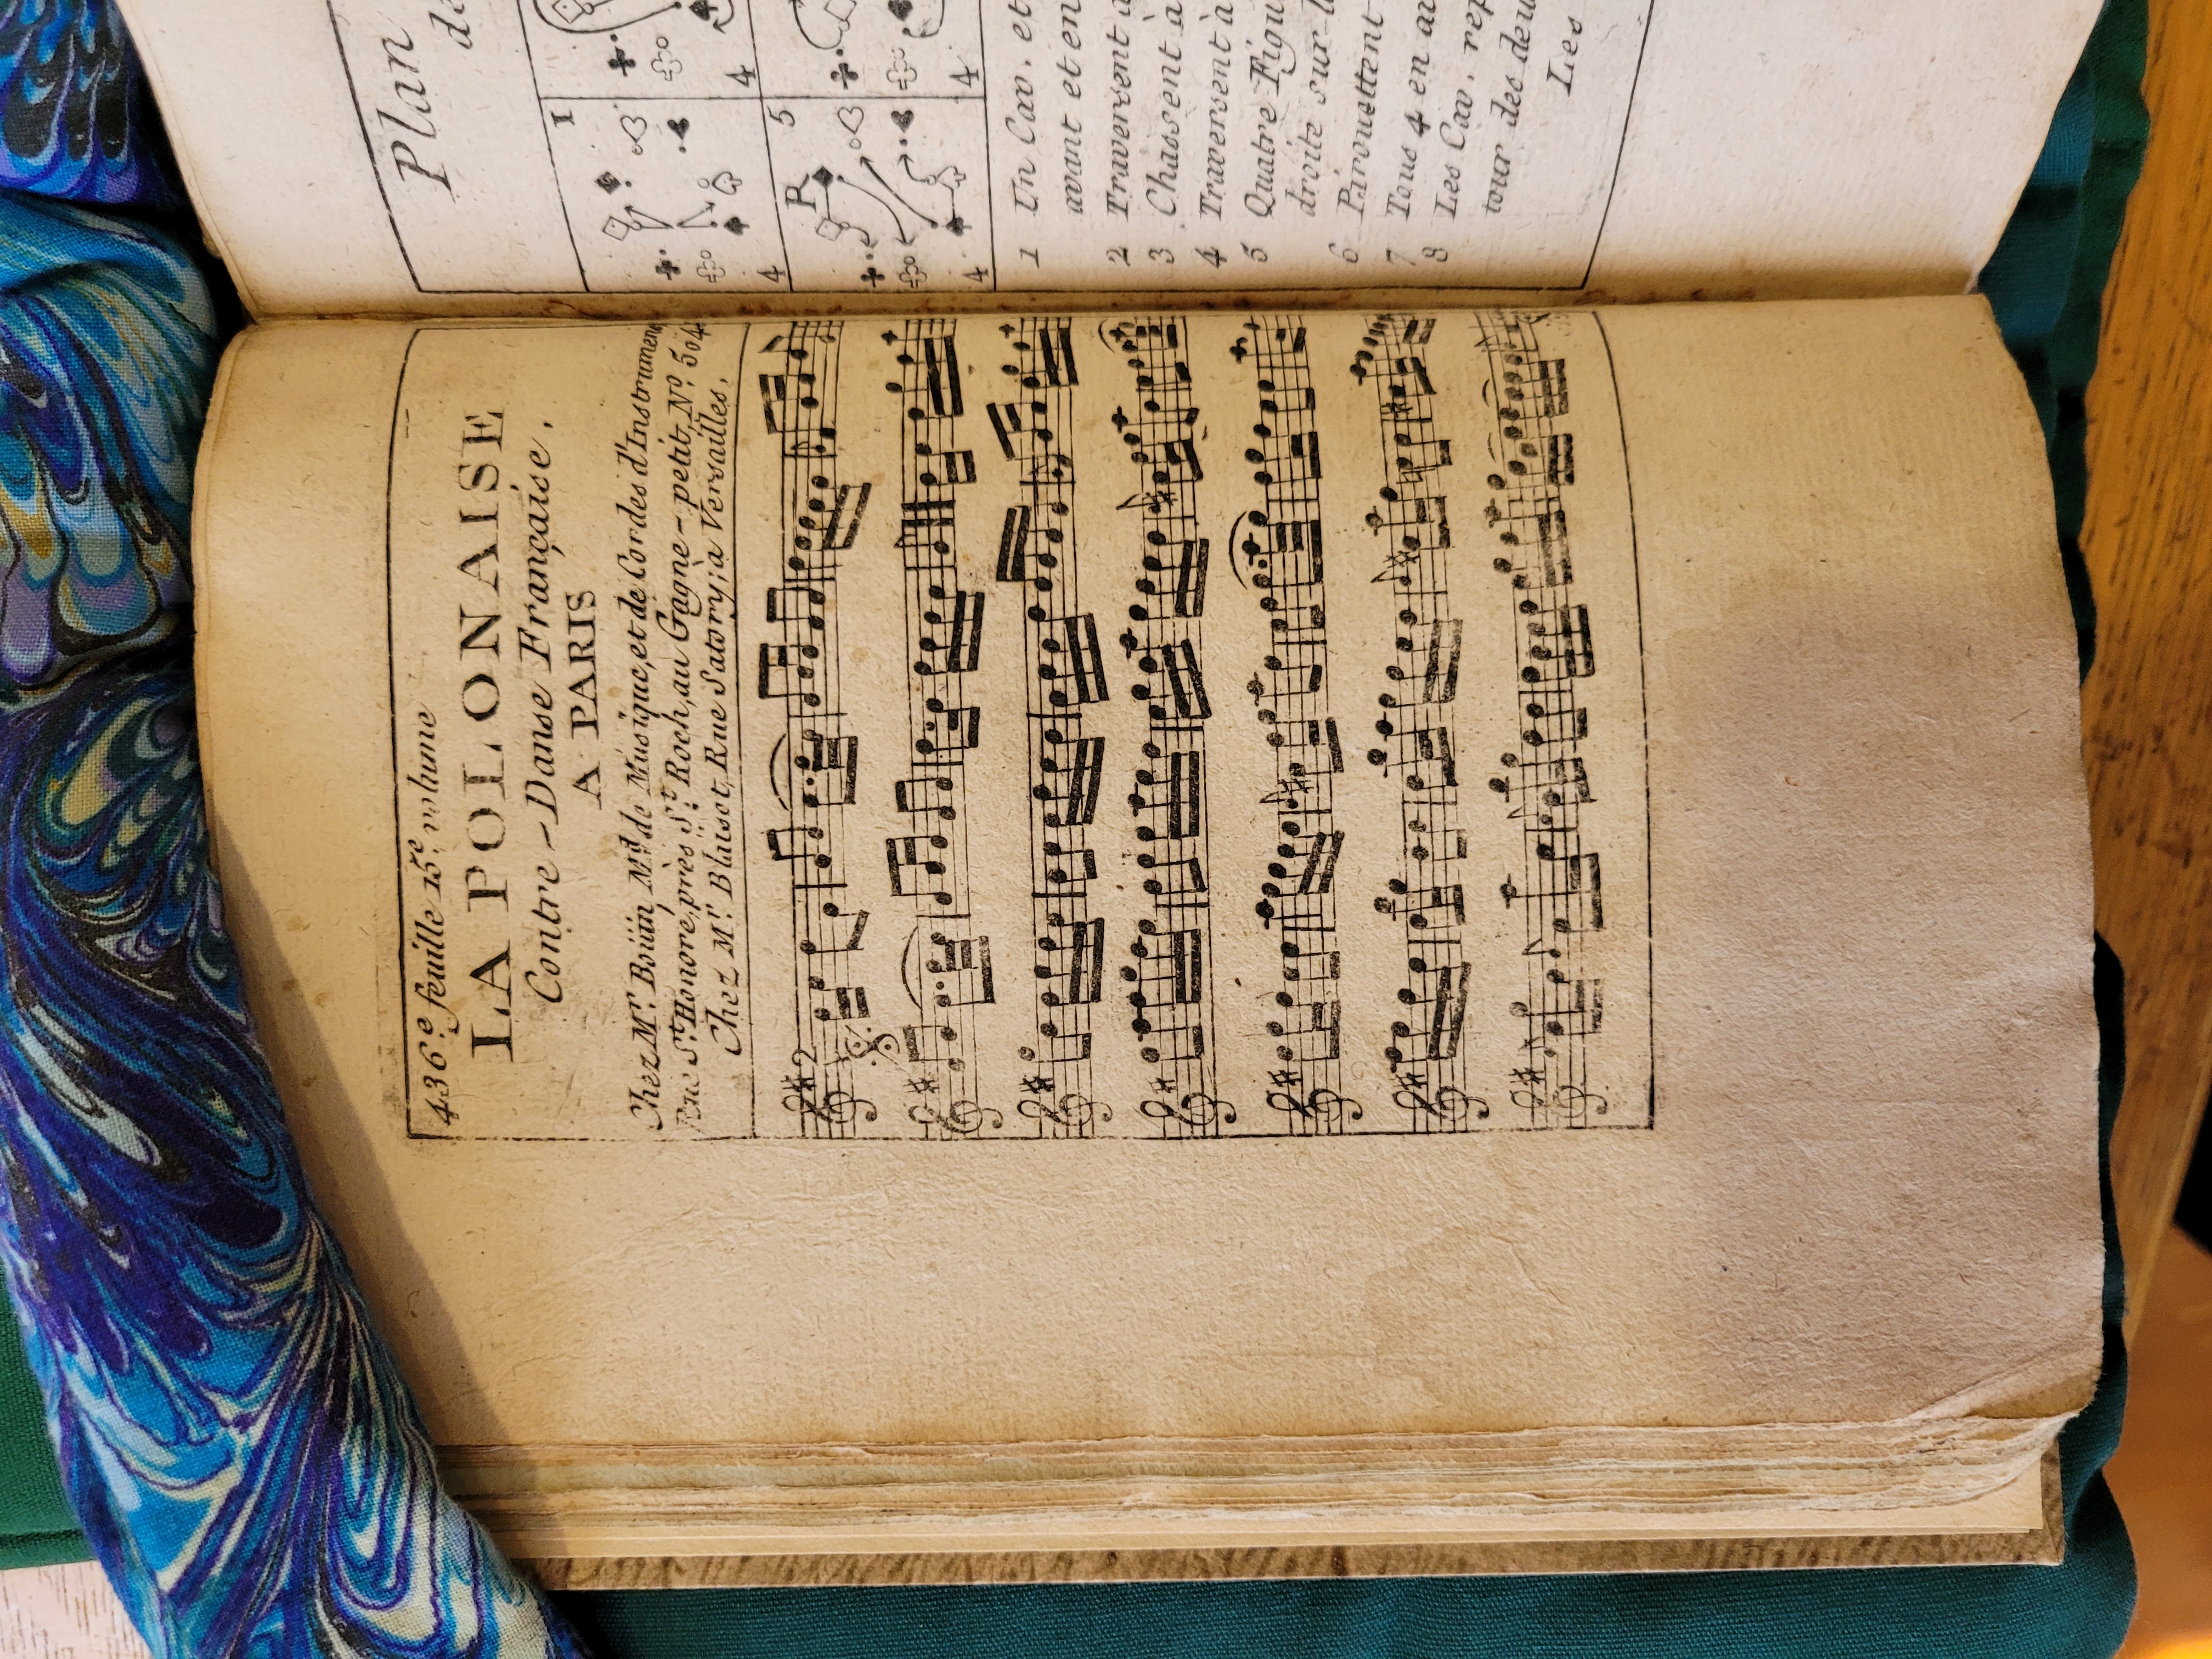 436.e feuille 15.e volume
LA POLONAISE
Contre-Danse Française.
A PARIS
Chez M.r Boüin, M.d de Musique, et de Cordes d'Instrumens
Rue S.t Honoré, près S.t Roch, au Gagne-petit, N.o 504
Chez M.r Blaisot, Rue Satory; a Versailles,
2
Plan
de
1
4
4
P
5
4
4
1 Un Cav. et
avant et en
2 Traversent à
3 Chassent à
4 Traversent à
5 Quatre Figu
droite sur l
6 Pirouettent
7 Tous 4 en av
8 Les Cav. rep
tour des deux
Les